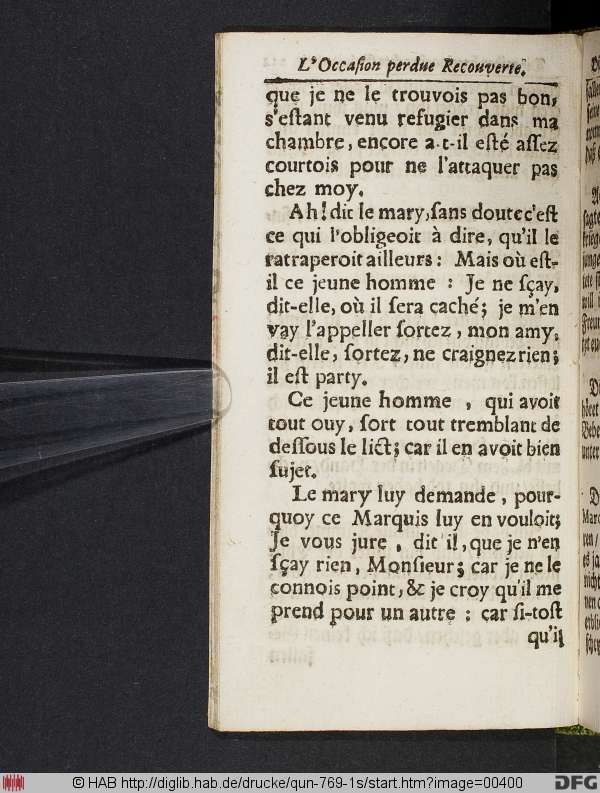 L'Occaſion perdue Recouverte.
que je ne le trouvois pas bon,
s'eſtant venu refugier dans ma
chambre, encore a-t-il eſté aſſez
courtois pour ne l'attaquer pas
chez moy.
Ah! dit le mary, ſans doute c'eſt
ce qui l'obligeoit à dire, qu'il le
ratraperoit ailleurs: Mais où eſt-
il ce jeune homme : Je ne ſçay,
dit-elle, où il ſera caché; je m'en
vay l'appeller ſortez, mon amy,
dit-elle, ſortez, ne craignez rien;
il eſt party.
Ce jeune homme , qui avoit
tout ouy, ſort tout tremblant de
deſſous le lict; car il en avoit bien
ſujet.
Le mary luy demande, pour-
quoy ce Marquis luy en vouloit;
Je vous jure , dit il, que je n'en
ſçay rien, Monſieur; car je ne le
connois point, & je croy qu'il me
prend pour un autre : car ſi-toſt
qu'il
© HAB http://diglib.hab.de/drucke/qun-769-1s/start.htm?image=00400
DFG